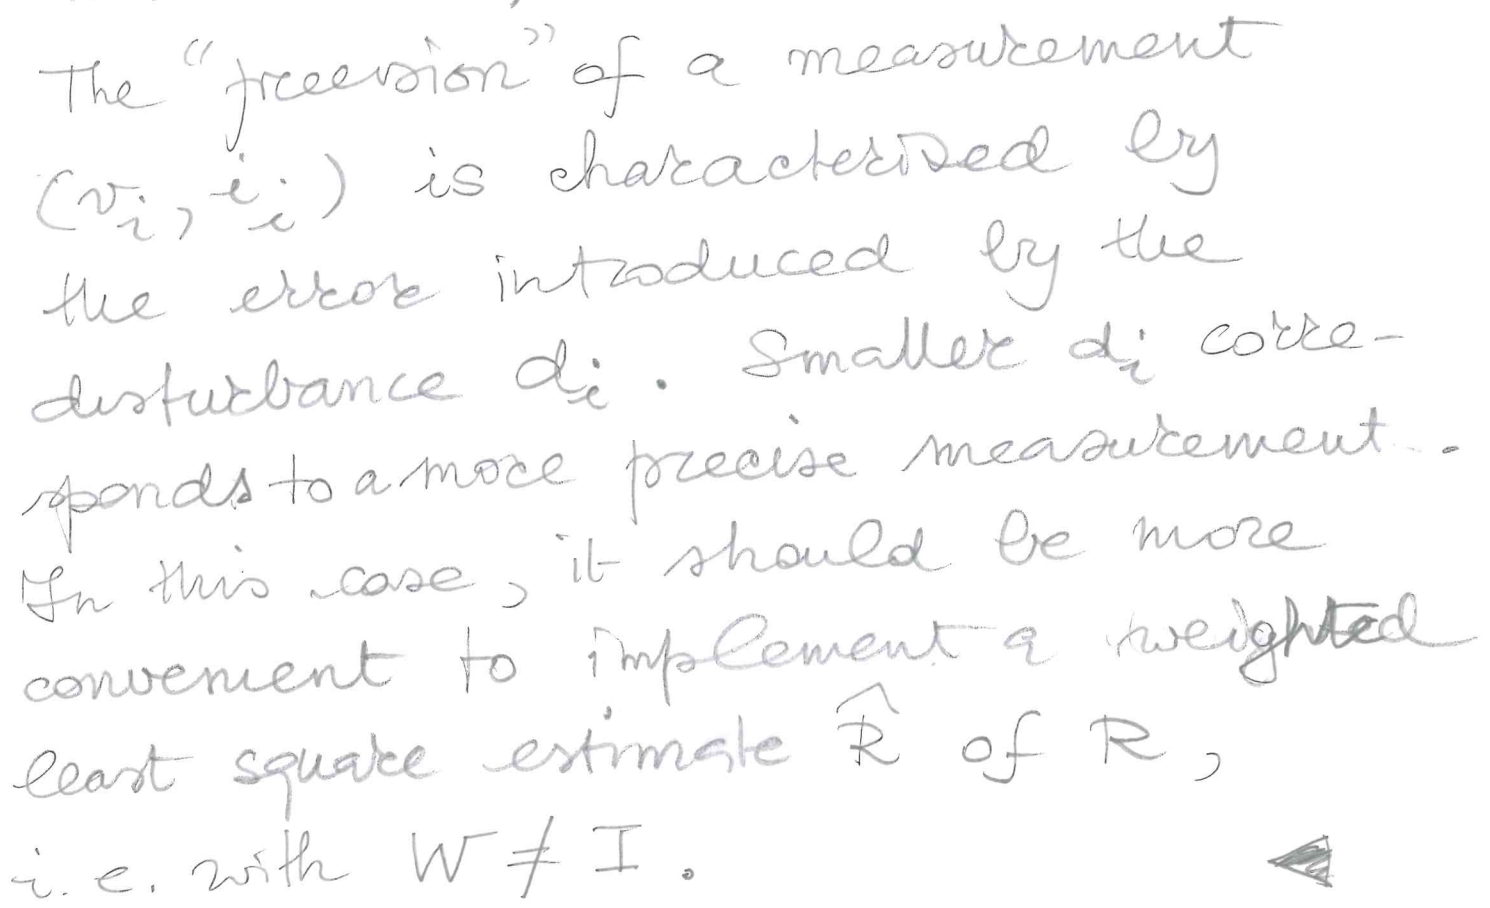 The "precision" of a measurement
(vᵢ, iᵢ) is characterised by
the error introduced by the
disturbance dᵢ. Smaller dᵢ corre-
sponds to a more precise measurement.
In this case, it should be more
convenient to implement a weighted
least square estimate R̂ of R,
i.e. with W ≠ I.